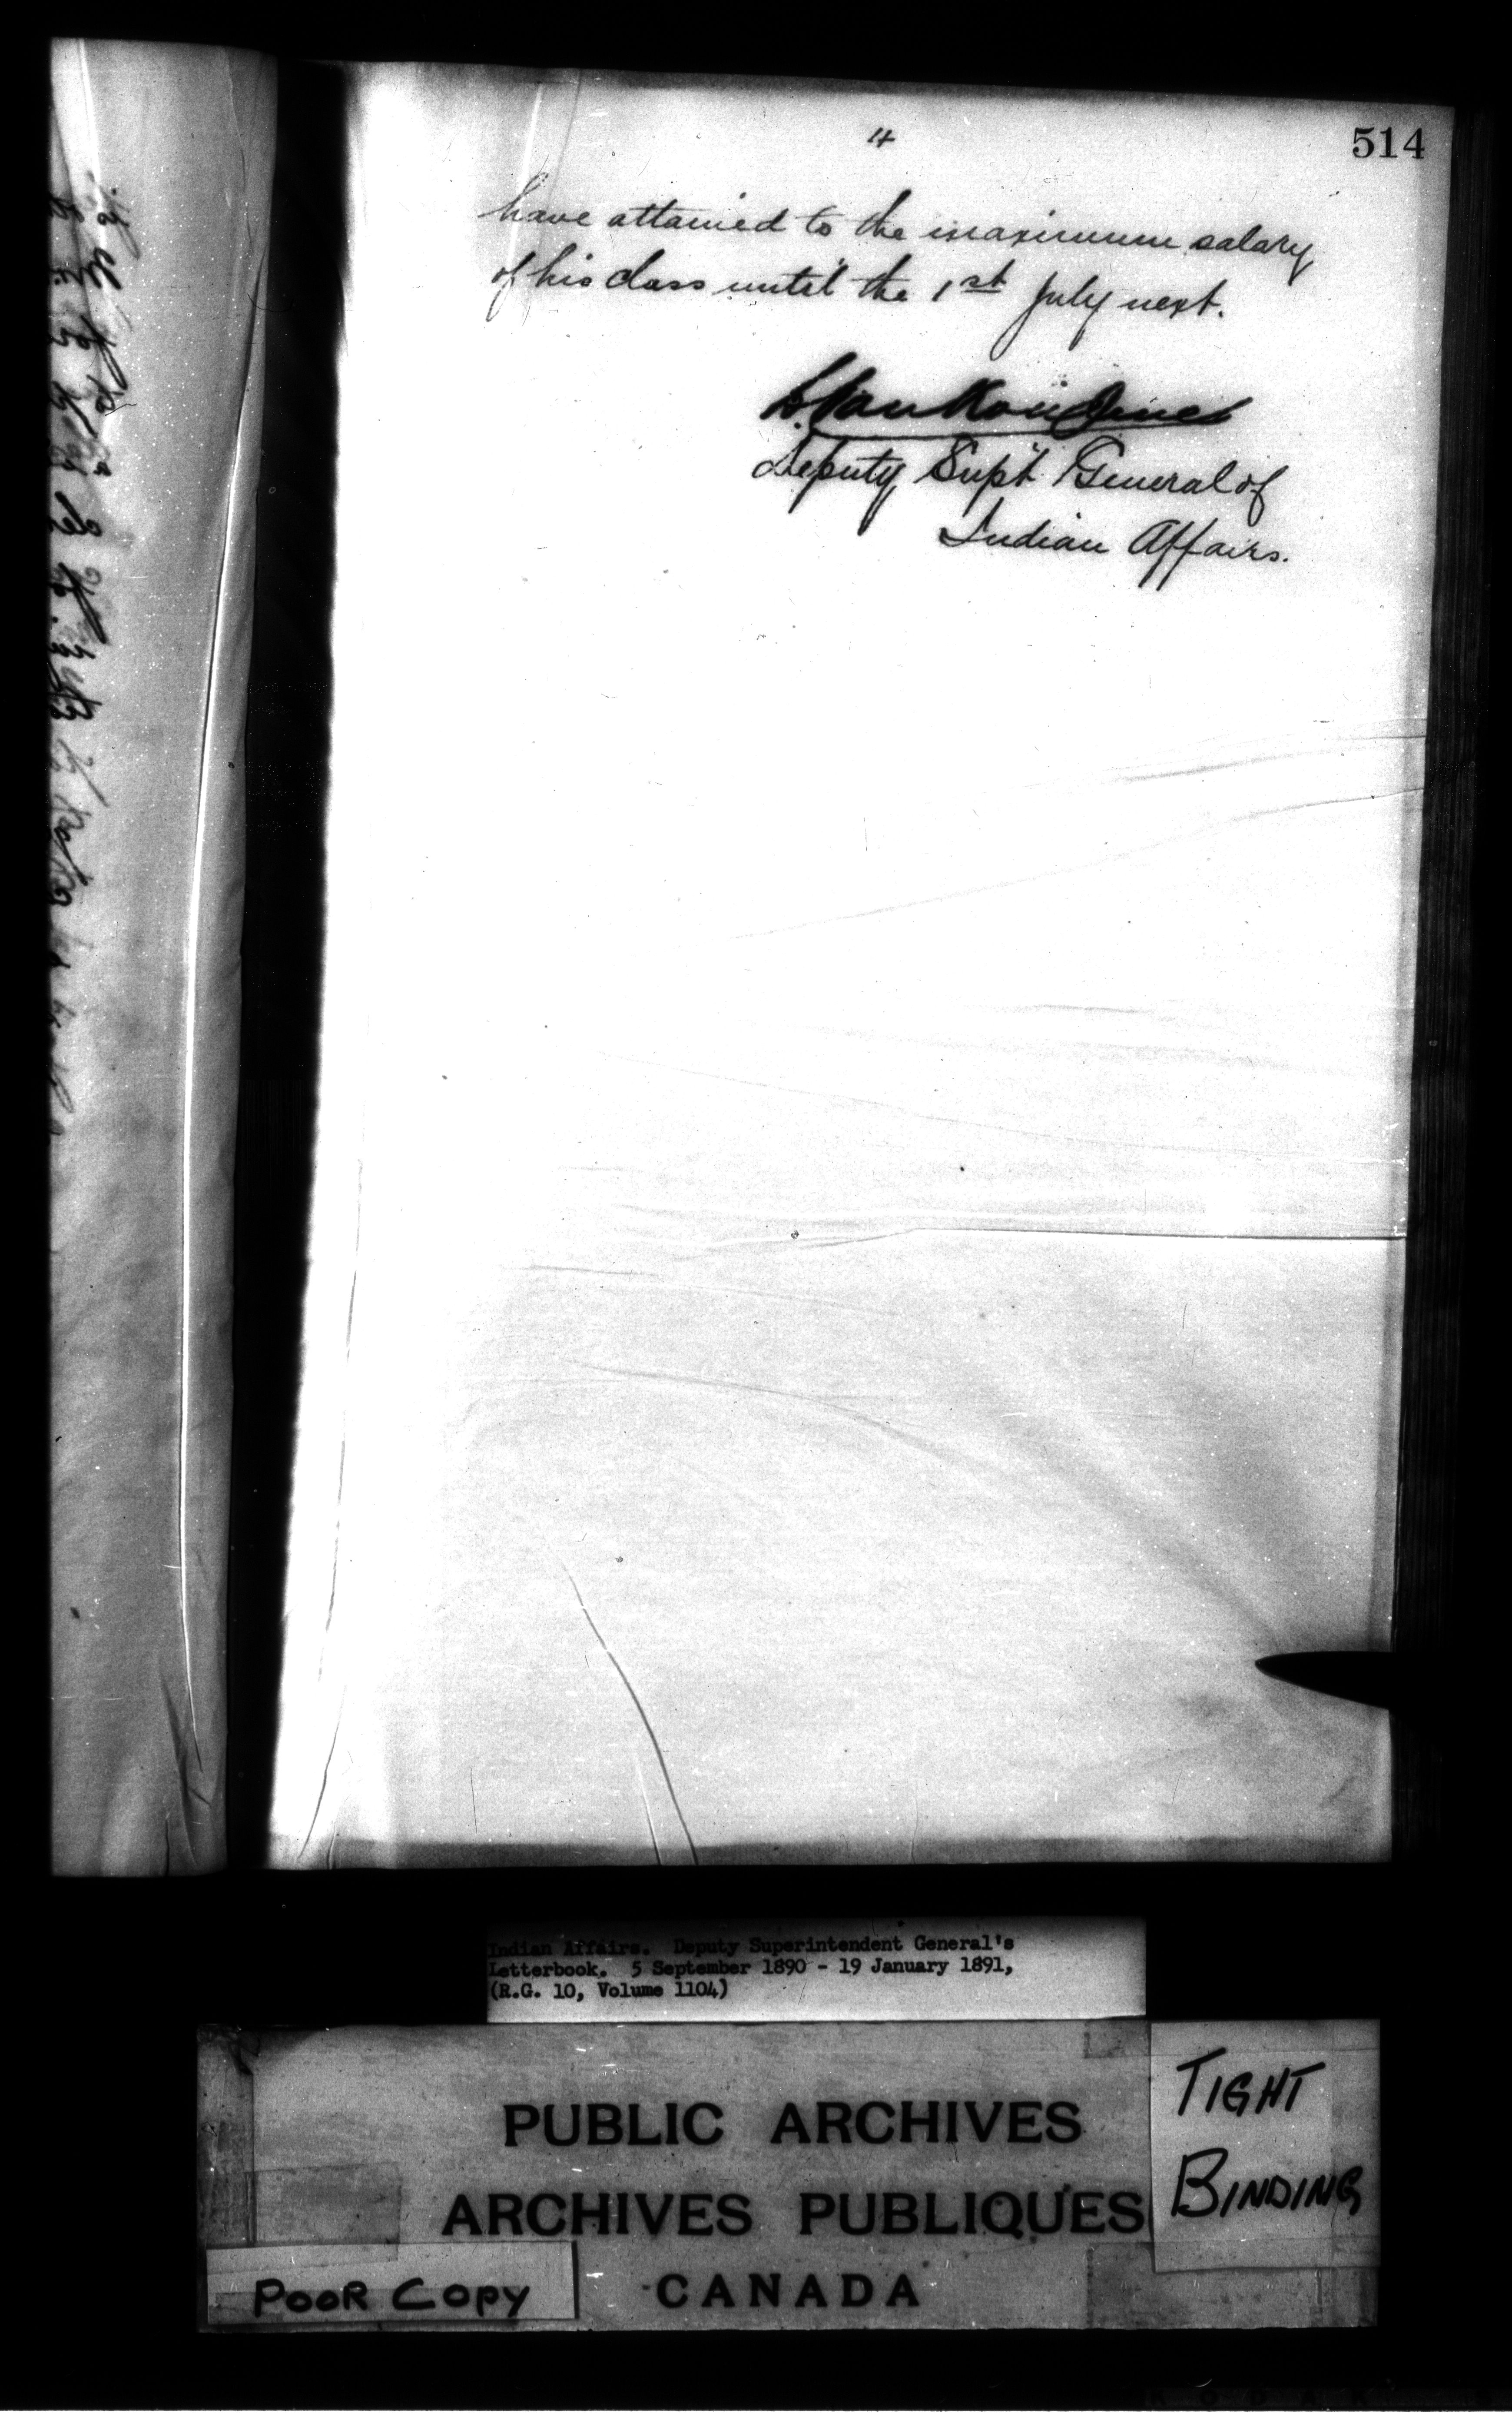 4
514
have attained to the maximum salary
of his class until the 1st July next.
L. VanKoughnet
Deputy Supt General of
Indian Affairs.
Indian Affairs. Deputy Superintendent General's
Letterbook. 5 September 1890 - 19 January 1891,
(R.G. 10, Volume 1104)
PUBLIC ARCHIVES
ARCHIVES PUBLIQUES
CANADA
TIGHT
BINDING
POOR COPY